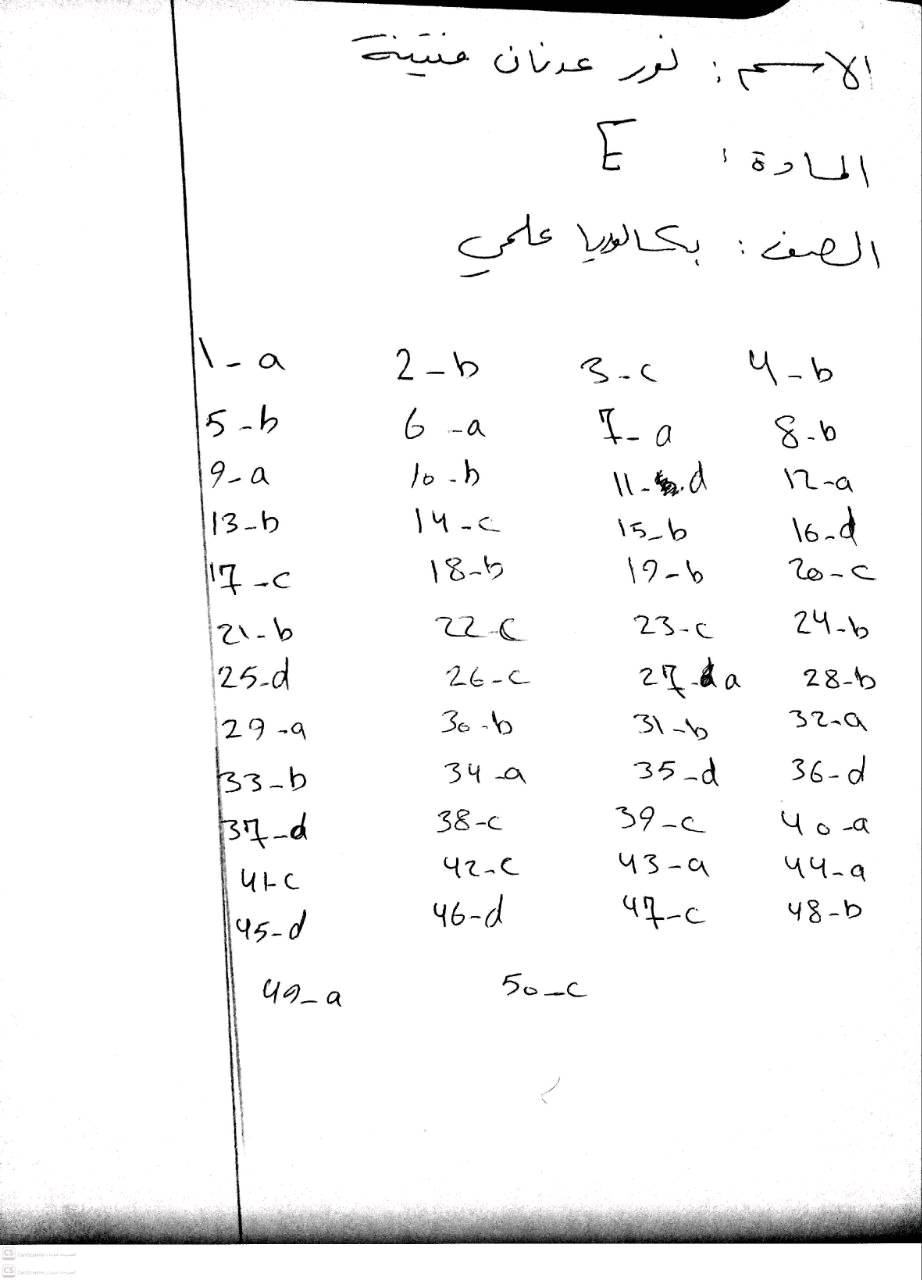 الاسم : نور عدنان منتينة
المادة : E
الصف : بكالوريا علمي
1-a 2-b 3-c 4-b
5-b 6-a 7-a 8-b
9-a 10-b 11-d 12-a
13-b 14-c 15-b 16-d
17-c 18-b 19-b 20-c
21-b 22-c 23-c 24-b
25-d 26-c 27-a 28-b
29-a 30-b 31-b 32-a
33-b 34-a 35-d 36-d
37-d 38-c 39-c 40-a
41-c 42-c 43-a 44-a
45-d 46-d 47-c 48-b
49-a 50-c
CS CamScanner
CS CamScanner